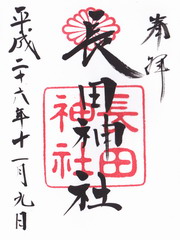 奉拝
長田神社
長田
神社
平成二十六年十一月九日